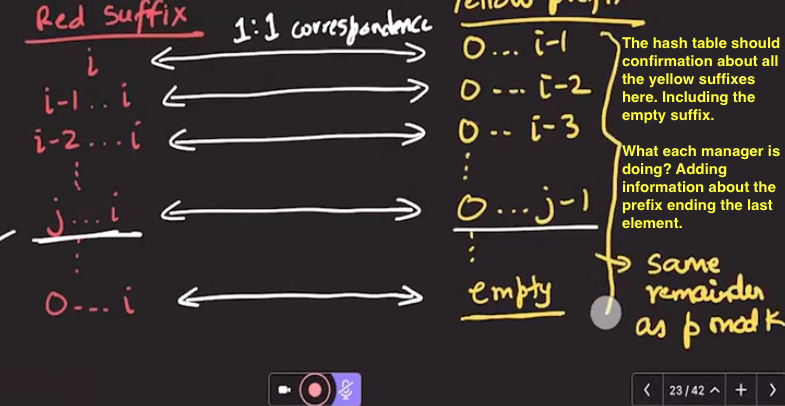 Red Suffix
1:1 correspondence
Yellow prefix
i
0... i-1
i-1 .. i
0 --- i-2
i-2 ....i
0 -- i-3
j...i
0...j-1
0--- i
empty
The hash table should
confirmation about all
the yellow suffixes
here. Including the
empty suffix.
What each manager is
doing? Adding
information about the
prefix ending the last
element.
same
remainder
as p mod K
23/42